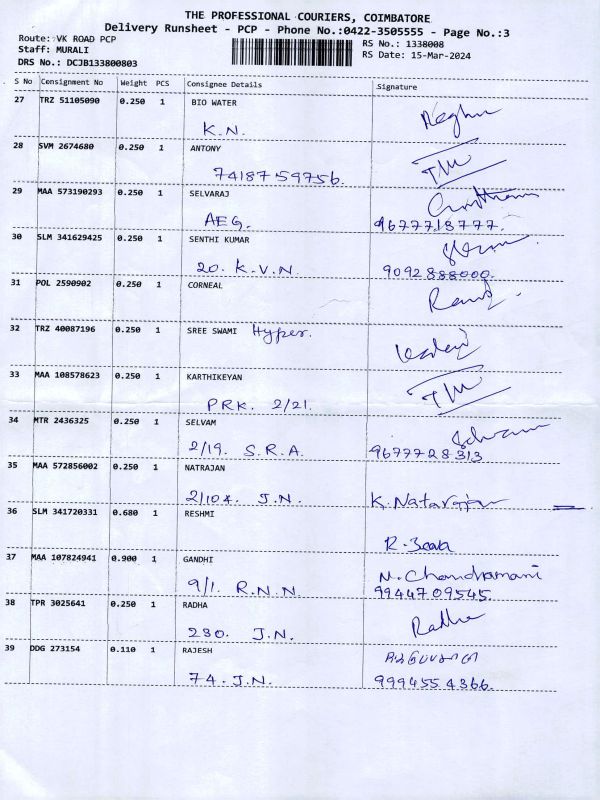 THE PROFESSIONAL COURIERS, COIMBATORE
Delivery Runsheet - PCP - Phone No.:0422-3505555 - Page No.:3
Route: VK ROAD PCP
Staff: MURALI
DRS No.: DCJB133800803
RS No.: 1338008
RS Date: 15-Mar-2024
S No Consignment No Weight PCS Consignee Details Signature
27 TRZ 51105090 0.250 1 BIO WATER
K.N.
28 SVM 2674680 0.250 1 ANTONY
7418759756.
29 MAA 573190293 0.250 1 SELVARAJ
AEG. 9677718777.
30 SLM 341629425 0.250 1 SENTHI KUMAR
20. K.V.N. 9092888000.
31 POL 2590902 0.250 1 CORNEAL
32 TRZ 40087196 0.250 1 SREE SWAMI Hyper.
33 MAA 108578623 0.250 1 KARTHIKEYAN
PRK. 2/21.
34 MTR 2436325 0.250 1 SELVAM
2/19. S.R.A. 9677728313
35 MAA 572856002 0.250 1 NATRAJAN
2/104. J.N. K. Natarajan
36 SLM 341720331 0.680 1 RESHMI
37 MAA 107824941 0.900 1 GANDHI
N. Chandramani
9/1. R.N.N. 9944709545.
38 TPR 3025641 0.250 1 RADHA
280. J.N. Radha
39 DDG 273154 0.110 1 RAJESH
74. J.N. 9994554366.